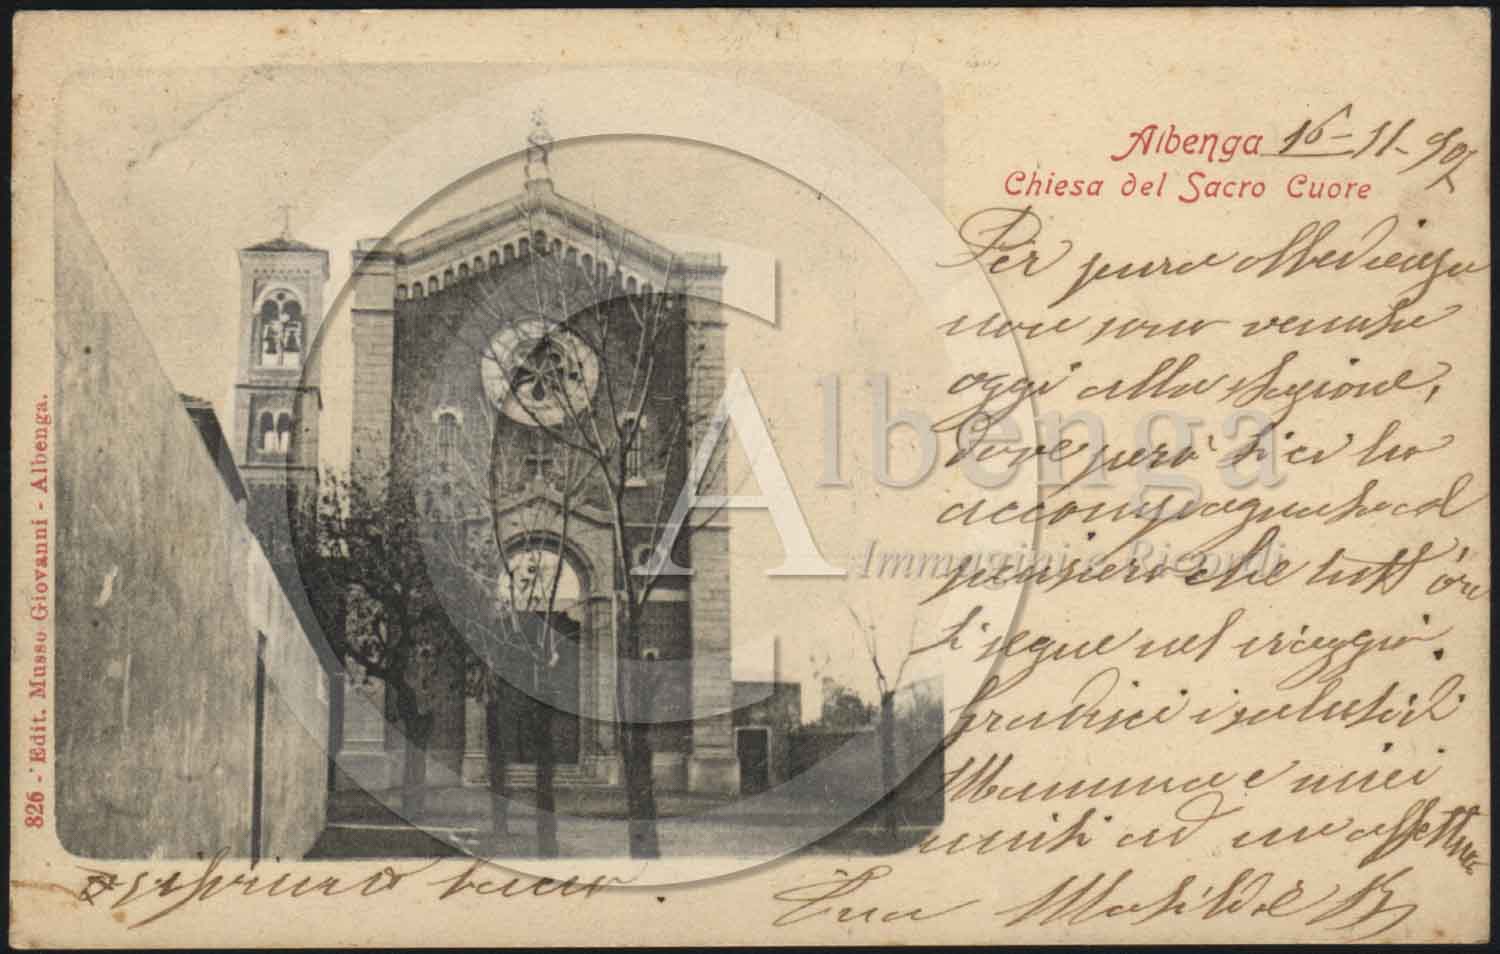 Albenga 16-11-902
Chiesa del Sacro Cuore
Per pura obbedienza
non sono venuta
oggi alla stazione,
dove però ti ci ho
accompagnata col
pensiero che tutt'ora
ti segue nel viaggio.
Gradisci i saluti di
Mamma e miei
uniti ad un affettuo
sissimo bacio.
Tua Matilde B
826 - Edit. Musso Giovanni - Albenga.
Albenga
Immagini e Ricordi